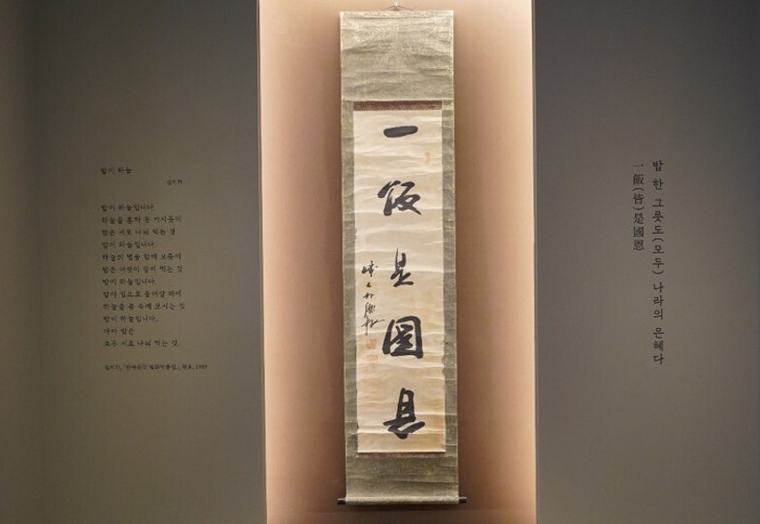 밥이 하늘
김지하
밥이 하늘입니다.
하늘을 혼자 못 가지듯이
밥은 서로 나눠 먹는 것
밥이 하늘입니다.
하늘의 별을 함께 보듯이
밥은 여럿이 같이 먹는 것
밥이 하늘입니다.
밥이 입으로 들어갈 때에
하늘을 몸 속에 모시는 것
밥이 하늘입니다.
아아 밥은
모두 서로 나눠 먹는 것.
김지하, 1989
一飯是國恩
밥 한 그릇도(모두) 나라의 은혜다
一飯(皆)是國恩